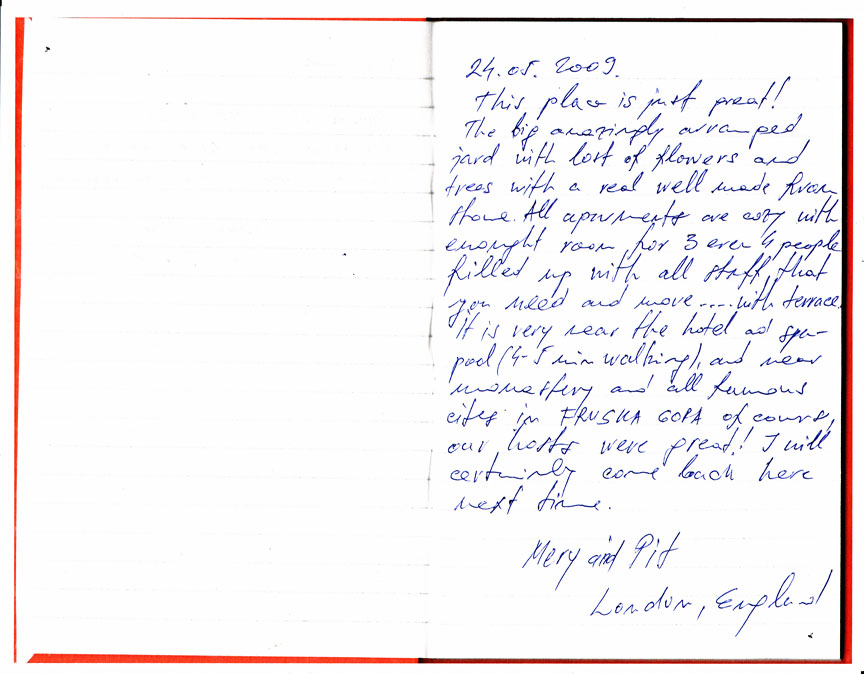 24.05.2009.
This place is just great!
The big amazingly arranged
jard with lost of flowers and
trees with a real well made from
stone. All aparments are cozy with
enought room for 3 even 4 people
filled up with all staff, that
you need and more.... with terrace.
It is very near the hotel ad spa-
pool (4-5 min walking), and near
monastery and all famous
cites in FRUSKA GORA of course,
our hosts were great! I will
certainly come back here
next time.
Mery and Pit
London, England